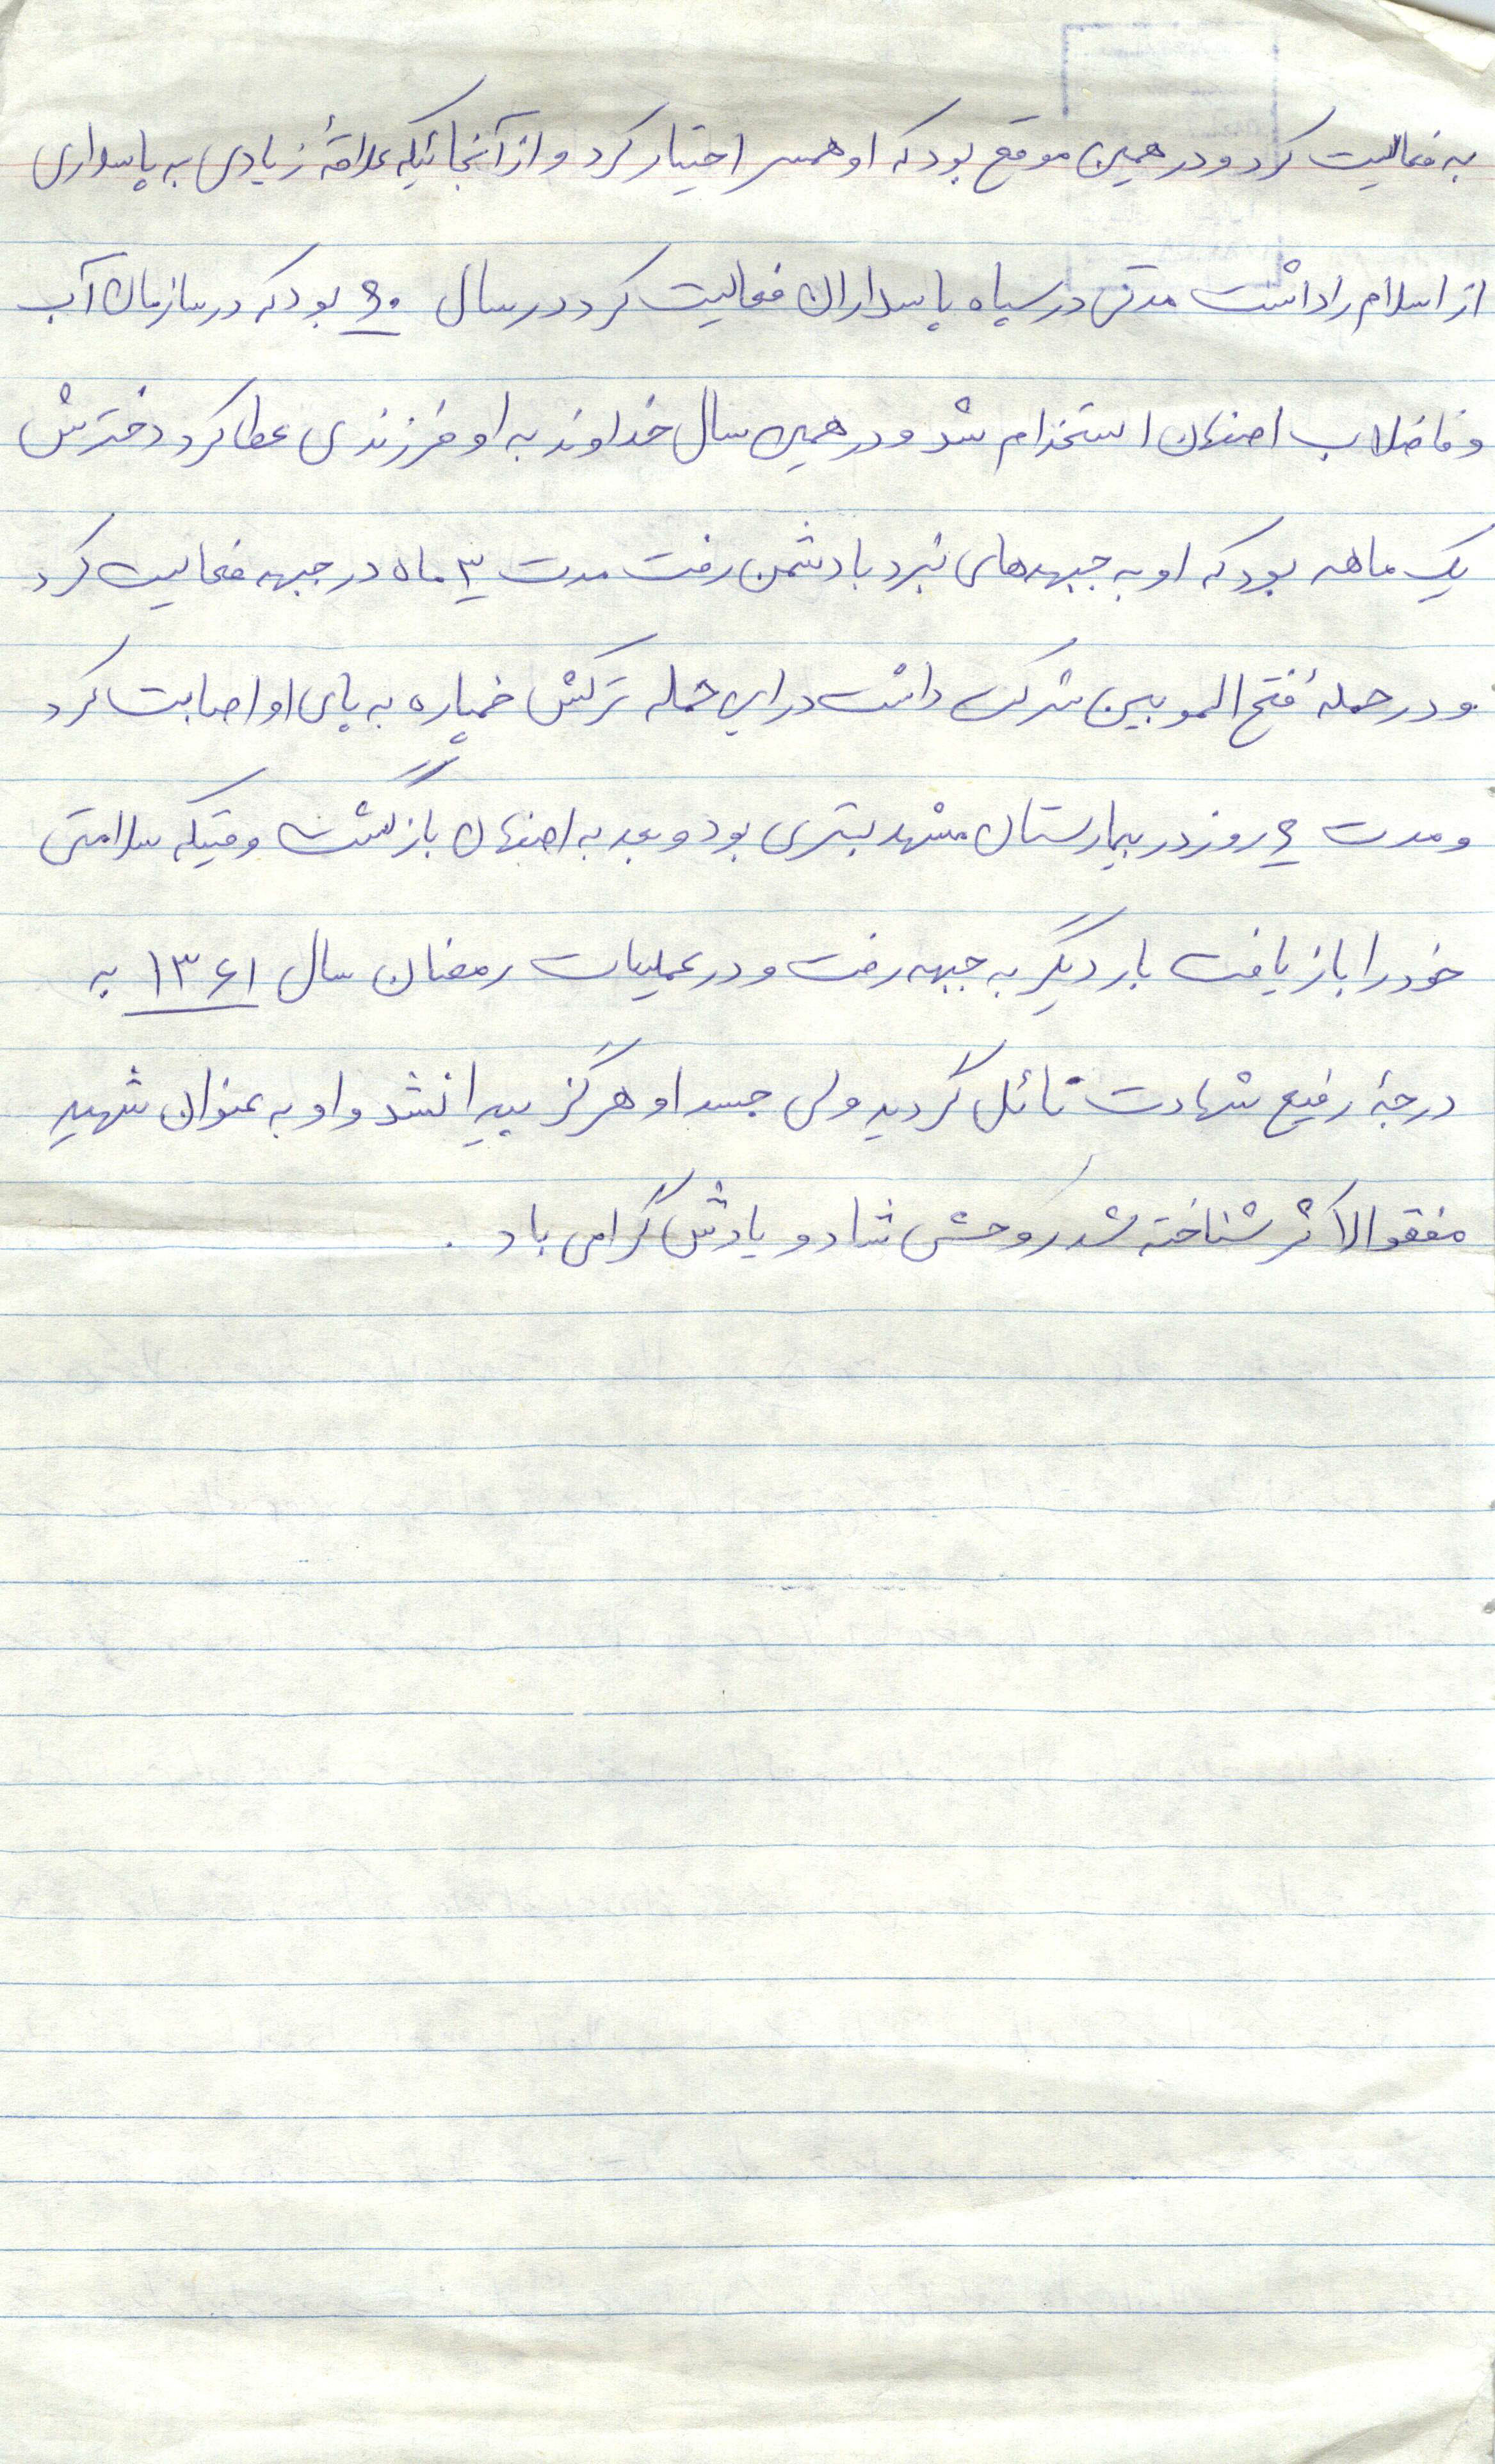 به فعالیت کرد و در همین موقع بود که او همسر اختیار کرد و از آنجائیکه علاقهٔ زیادی به پاسداری
از اسلام را داشت مدتی در سپاه پاسداران فعالیت کرد در سال ۶۰ بود که در سازمان آب
و فاضلاب اصفهان استخدام شد و در همین سال خداوند به او فرزندی عطا کرد دخترش
یک ماهه بود که او به جبهه‌های نبرد با دشمن رفت مدت ۳ ماه در جبهه فعالیت کرد
و در حملهٔ فتح الموبین شرکت داشت در این حمله ترکش خمپاره به پای او اصابت کرد
و مدت ۶ روز در بیمارستان مشهد بستری بود و بعد به اصفهان بازگشت وقتیکه سلامتی
خود را بازیافت بار دیگر به جبهه رفت و در عملیات رمضان سال ۱۳۶۱ به
درجهٔ رفیع شهادت نائل گردید ولی جسد او هرگز پیدا نشد و او به عنوان شهید
مفقوالاثر شناخته شد روحش شاد و یادش گرامی باد .